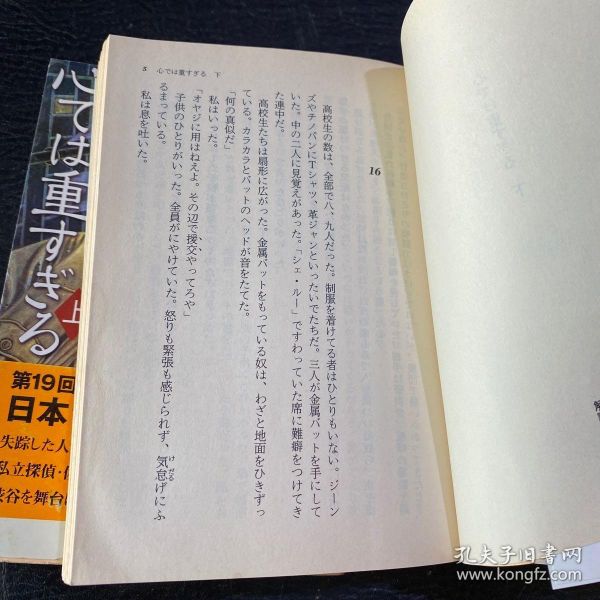 5 心では重すぎる 下
16
高校生の数は、全部で八、九人だった。制服を着けてる者はひとりもいない。ジーン
ズやチノパンにTシャツ、革ジャンといったいでたちだ。三人が金属バットを手にして
いた。中の二人に見覚えがあった。「シェ・ルー」ですわっていた席に難癖をつけてき
た連中だ。
高校生たちは扇形に広がった。金属バットをもっている奴は、わざと地面をひきずっ
ている。カラカラとバットのヘッドが音をたてた。
「何の真似だ」
私はいった。
「オヤジに用はねえよ。その辺で援交やってろや」
子供のひとりがいった。全員がにやけていた。怒りも緊張も感じられず、気怠げにふ
けだる
るまっている。
私は息を吐いた。
心では重すぎる
上
第19回
日本
失踪した人
私立探偵・
渋谷を舞台
孔夫子旧书网
www.kongfz.com